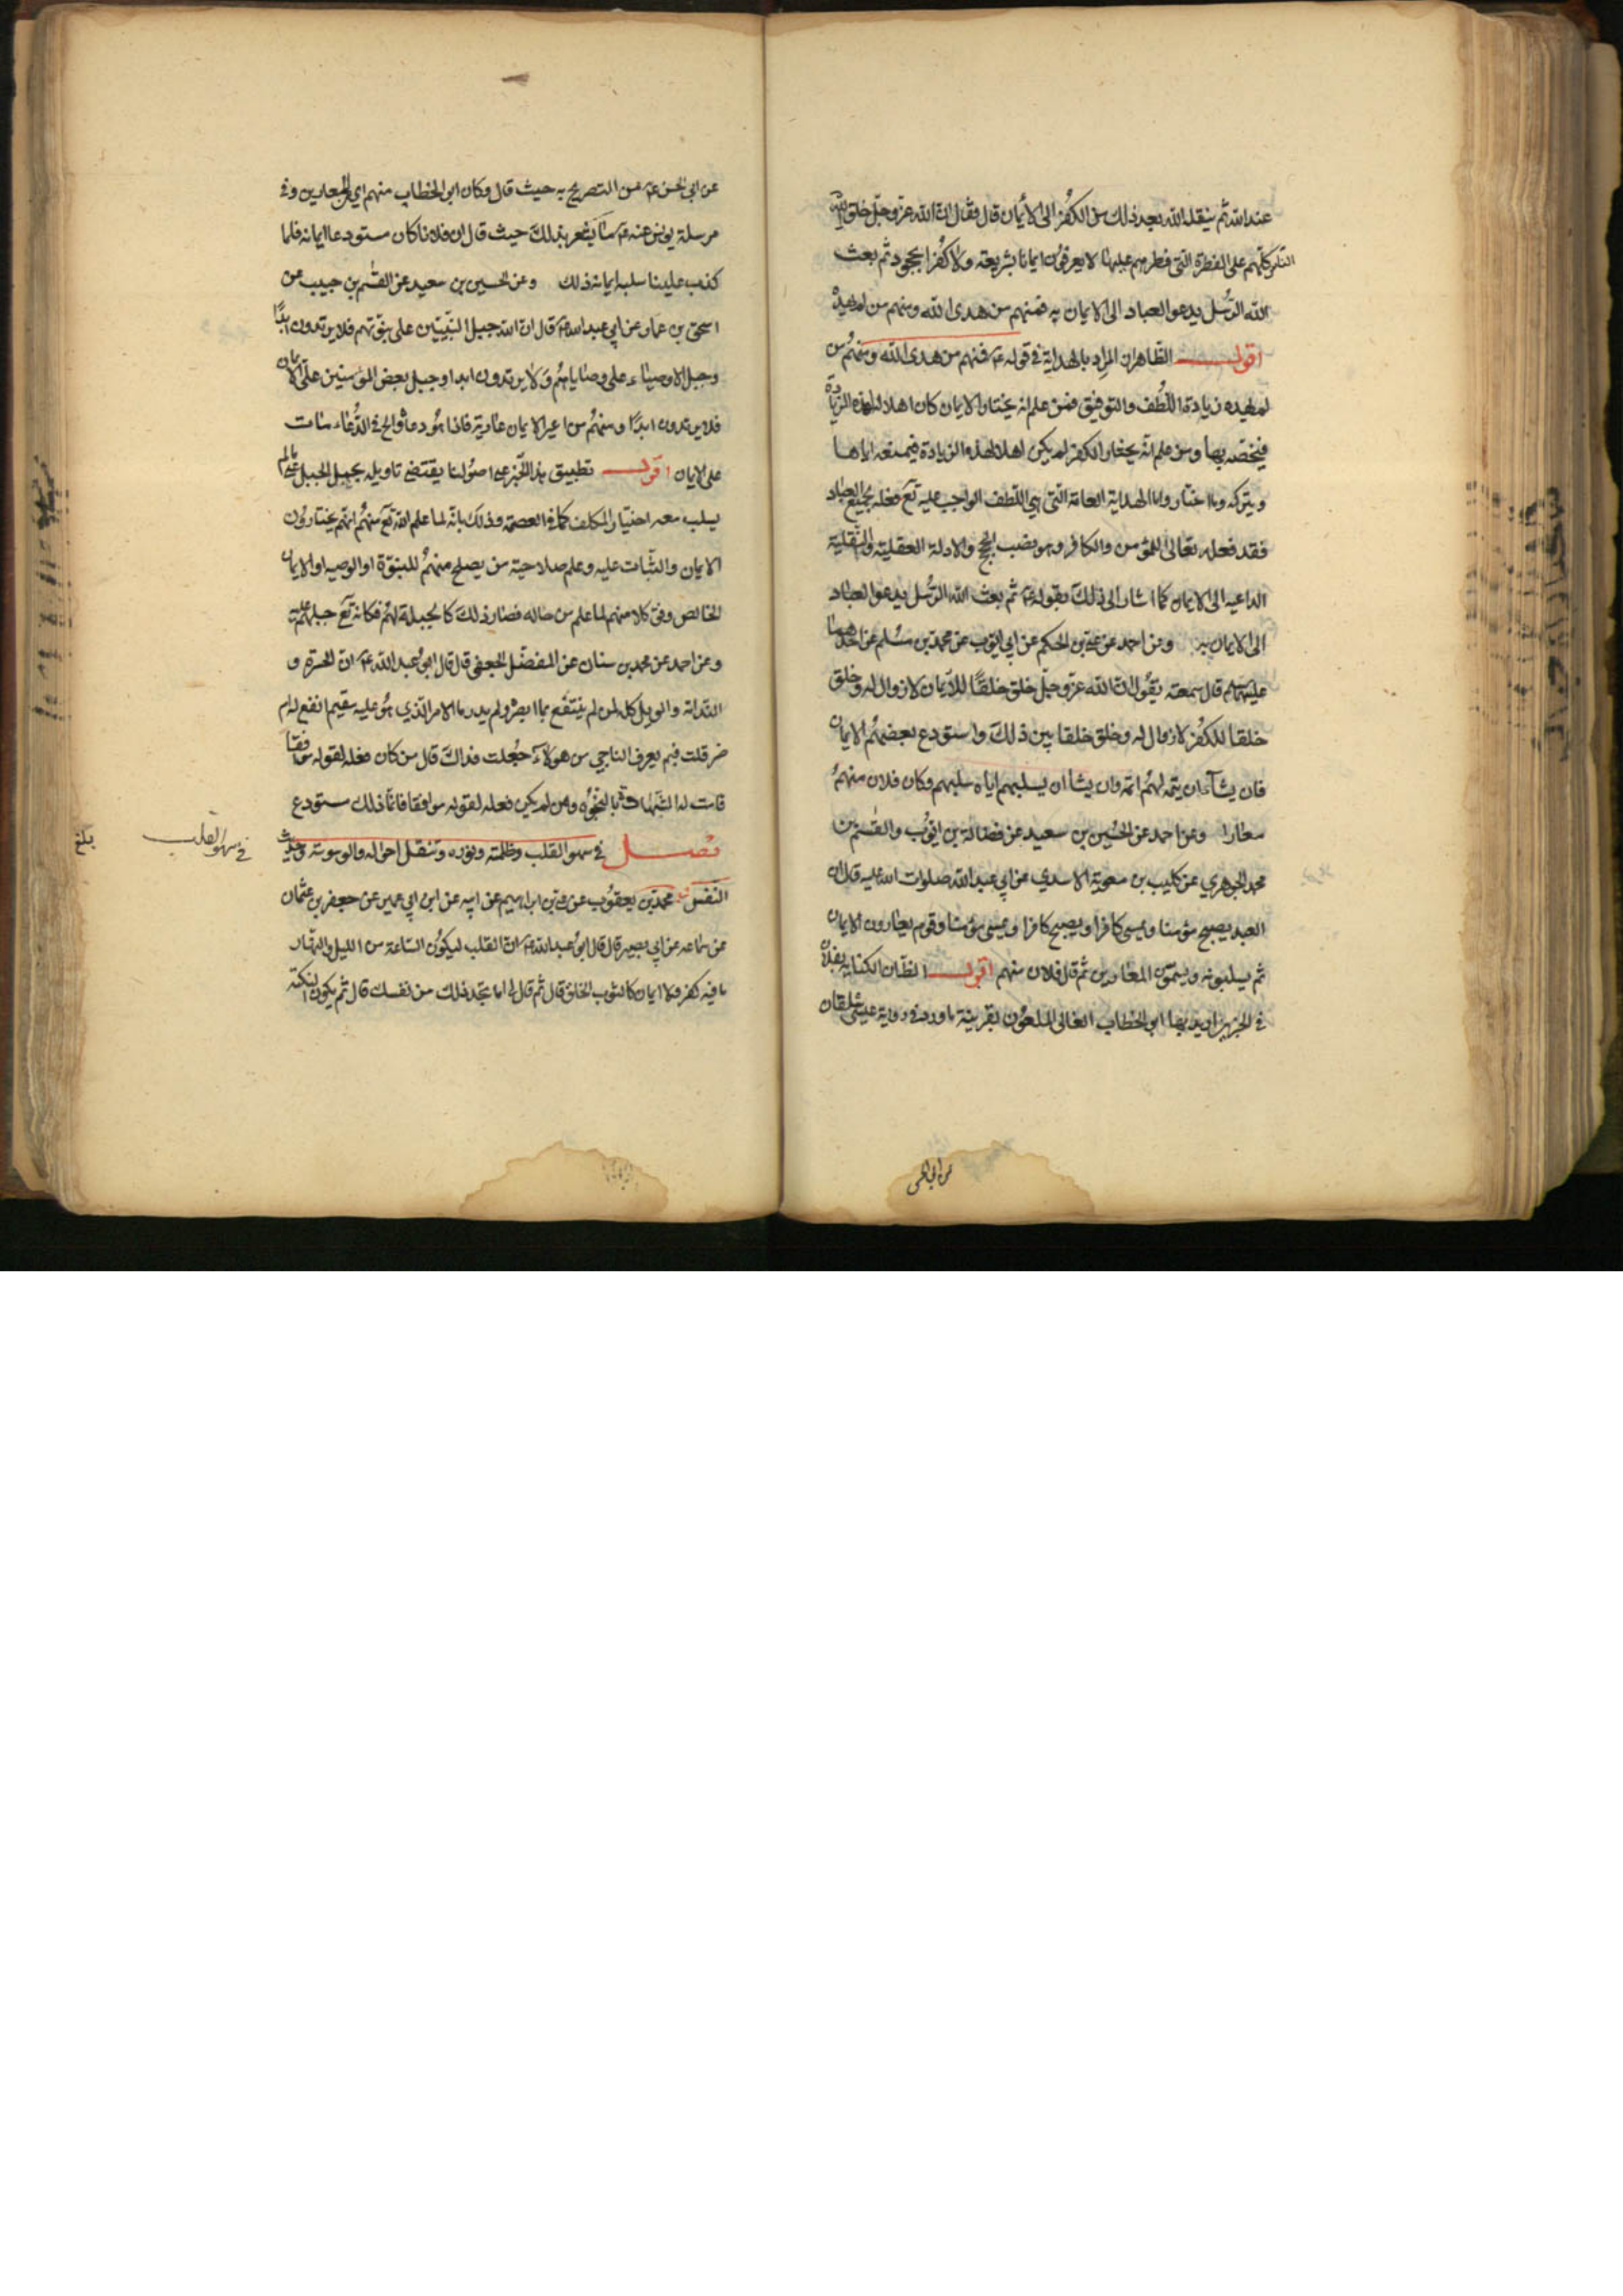 عند الله ثم ينقله الله بعد ذلك من الكفر الى الأيمان قال فقال ان الله عز وجل خلق
الناس كلهم على الفطرة التي فطرهم عليها لا يعرفون ايمانا بشريعته ولا كفرا بجحود ثم بعث
الله الرُّسل يدعو العباد الى الايمان به فمنهم من هدى الله ومنهم من لم يهده
اقول الظاهر ان المراد بالهداية في قوله ع فمنهم من هدى الله ومنهم من
لم يهده زيادة اللُّطف والتوفيق فمن علم انه يختار الايمان كان اهلا لهذه الزيادة
فيخصّه بها ومن علم انّه يختار الكفر لم يكن اهلا لهذه الزيادة فيمنعه اياها
ويتركه وما اختار واما الهداية العامة التي هي اللطف الواجب عليه تع فعله بجميع العباد
فقد فعله تعالى للمؤمن والكافر وهو نصب الحجج والادلة العقلية والنقلية
الداعية الى الايمان كما اشار الى ذلك بقوله ع ثم بعث الله الرُّسل يدعو العباد
الى الايمان به وعن احمد عن علي بن الحكم عن ابي ايوب عن محمد بن مسلم عن احدهما
عليهما السلام قال سمعته يقول ان الله عز وجل خلق خلقًا للايمان لا زوال له وخلق
خلقا للكفر لا زوال له وخلق خلقا بين ذلك واستودع بعضهم الايمان
فان يشأ ان يتمه لهم اتمه وان يشأ ان يسلبهم اياه سلبهم وكان فلان منهم
معارا وعن احمد عن الحسين بن سعيد عن فضالة بن ايوب والقسم بن
محمد الجوهري عن كليب بن معوية الاسدي عن ابي عبد الله صلوات الله عليه قال ان
العبد يصبح مؤمنا ويمسى كافرا ويصبح كافرا ويمسى مؤمنا وقوم يعارون الايمان
ثم يسلبونه ويسمّون المعارين ثم قال فلان منهم اقول الظ ان الكناية بفلان
في الخبرين اريد بها ابو الخطاب الغالى الملعون بقرينة ما ورد في رواية عيسى شلقان
عن ابي الحسن
عن ابي الحسن ع من التصريح به حيث قال وكان ابو الخطاب منهم اي المعارين وفي
مرسلة يونس عنه ع ما يشعر بذلك حيث قال ان فلانا كان مستودعا ايمانه فلما
كذب علينا سلب ايمانه ذلك وعن الحسين بن سعيد عن القسم بن حبيب عن
اسحق بن عمار عن ابي عبد الله ع قال ان الله جبل النبيين على نبوّتهم فلا يرتدون ابدًا
وجبل الاوصياء على وصاياهم فلا يرتدون ابدا وجبل بعض المؤمنين على الايمان
فلا يرتدون ابدًا ومنهم من اعير الايمان عارية فاذا هو دعا والح في الدُّعاء مات
على الايمان اقول تطبيق هذا الخبر على اصولنا يقتضي تاويله بجعل الجبل على ما لم
يسلب معه اختيار المكلف كما في العصمة وذلك بانّه لما علم الله تع منهم انهم يختارون
الايمان والثبات عليه وعلم صلاحية من يصلح منهم للنبوّة او الوصية او الايمان
الخالص وفق كلا منهم لما علم من حاله فصار ذلك كالجبلة لهم فكانه تع جبلهم عليه
وعن احمد عن محمد بن سنان عن المفضّل الجعفي قال قال ابو عبد الله ع ان الحسرة و
الندامة والويل كله لمن لم ينتفع بما ابصره ولم يدر ما الامر الذي هو عليه مقيم انفع له ام
ضر قلت فبم يعرف الناجي من هولاء جعلت فداك قال من كان فعله لقوله موافقا
فاثبت له الشهادة بالنجوة ومن لم يكن فعله لقوله موافقا فانما ذلك مستودع
فصل في سهو القلب وظلمته ونوره وتنقل احواله والوسوسة وحديث
النفس محمد بن يعقوب عن علي بن ابراهيم عن ابيه عن ابن ابي عمير عن جعفر بن عثمان
عن سماعه عن ابي بصير قال قال ابو عبد الله ع ان القلب ليكون الساعة من الليل والنهار
ما فيه كفر ولا ايمان كالثوب الخلق قال ثم قال لي اما تجد ذلك من نفسك قال ثم يكون النكتة
في سهو القلب
بلغ